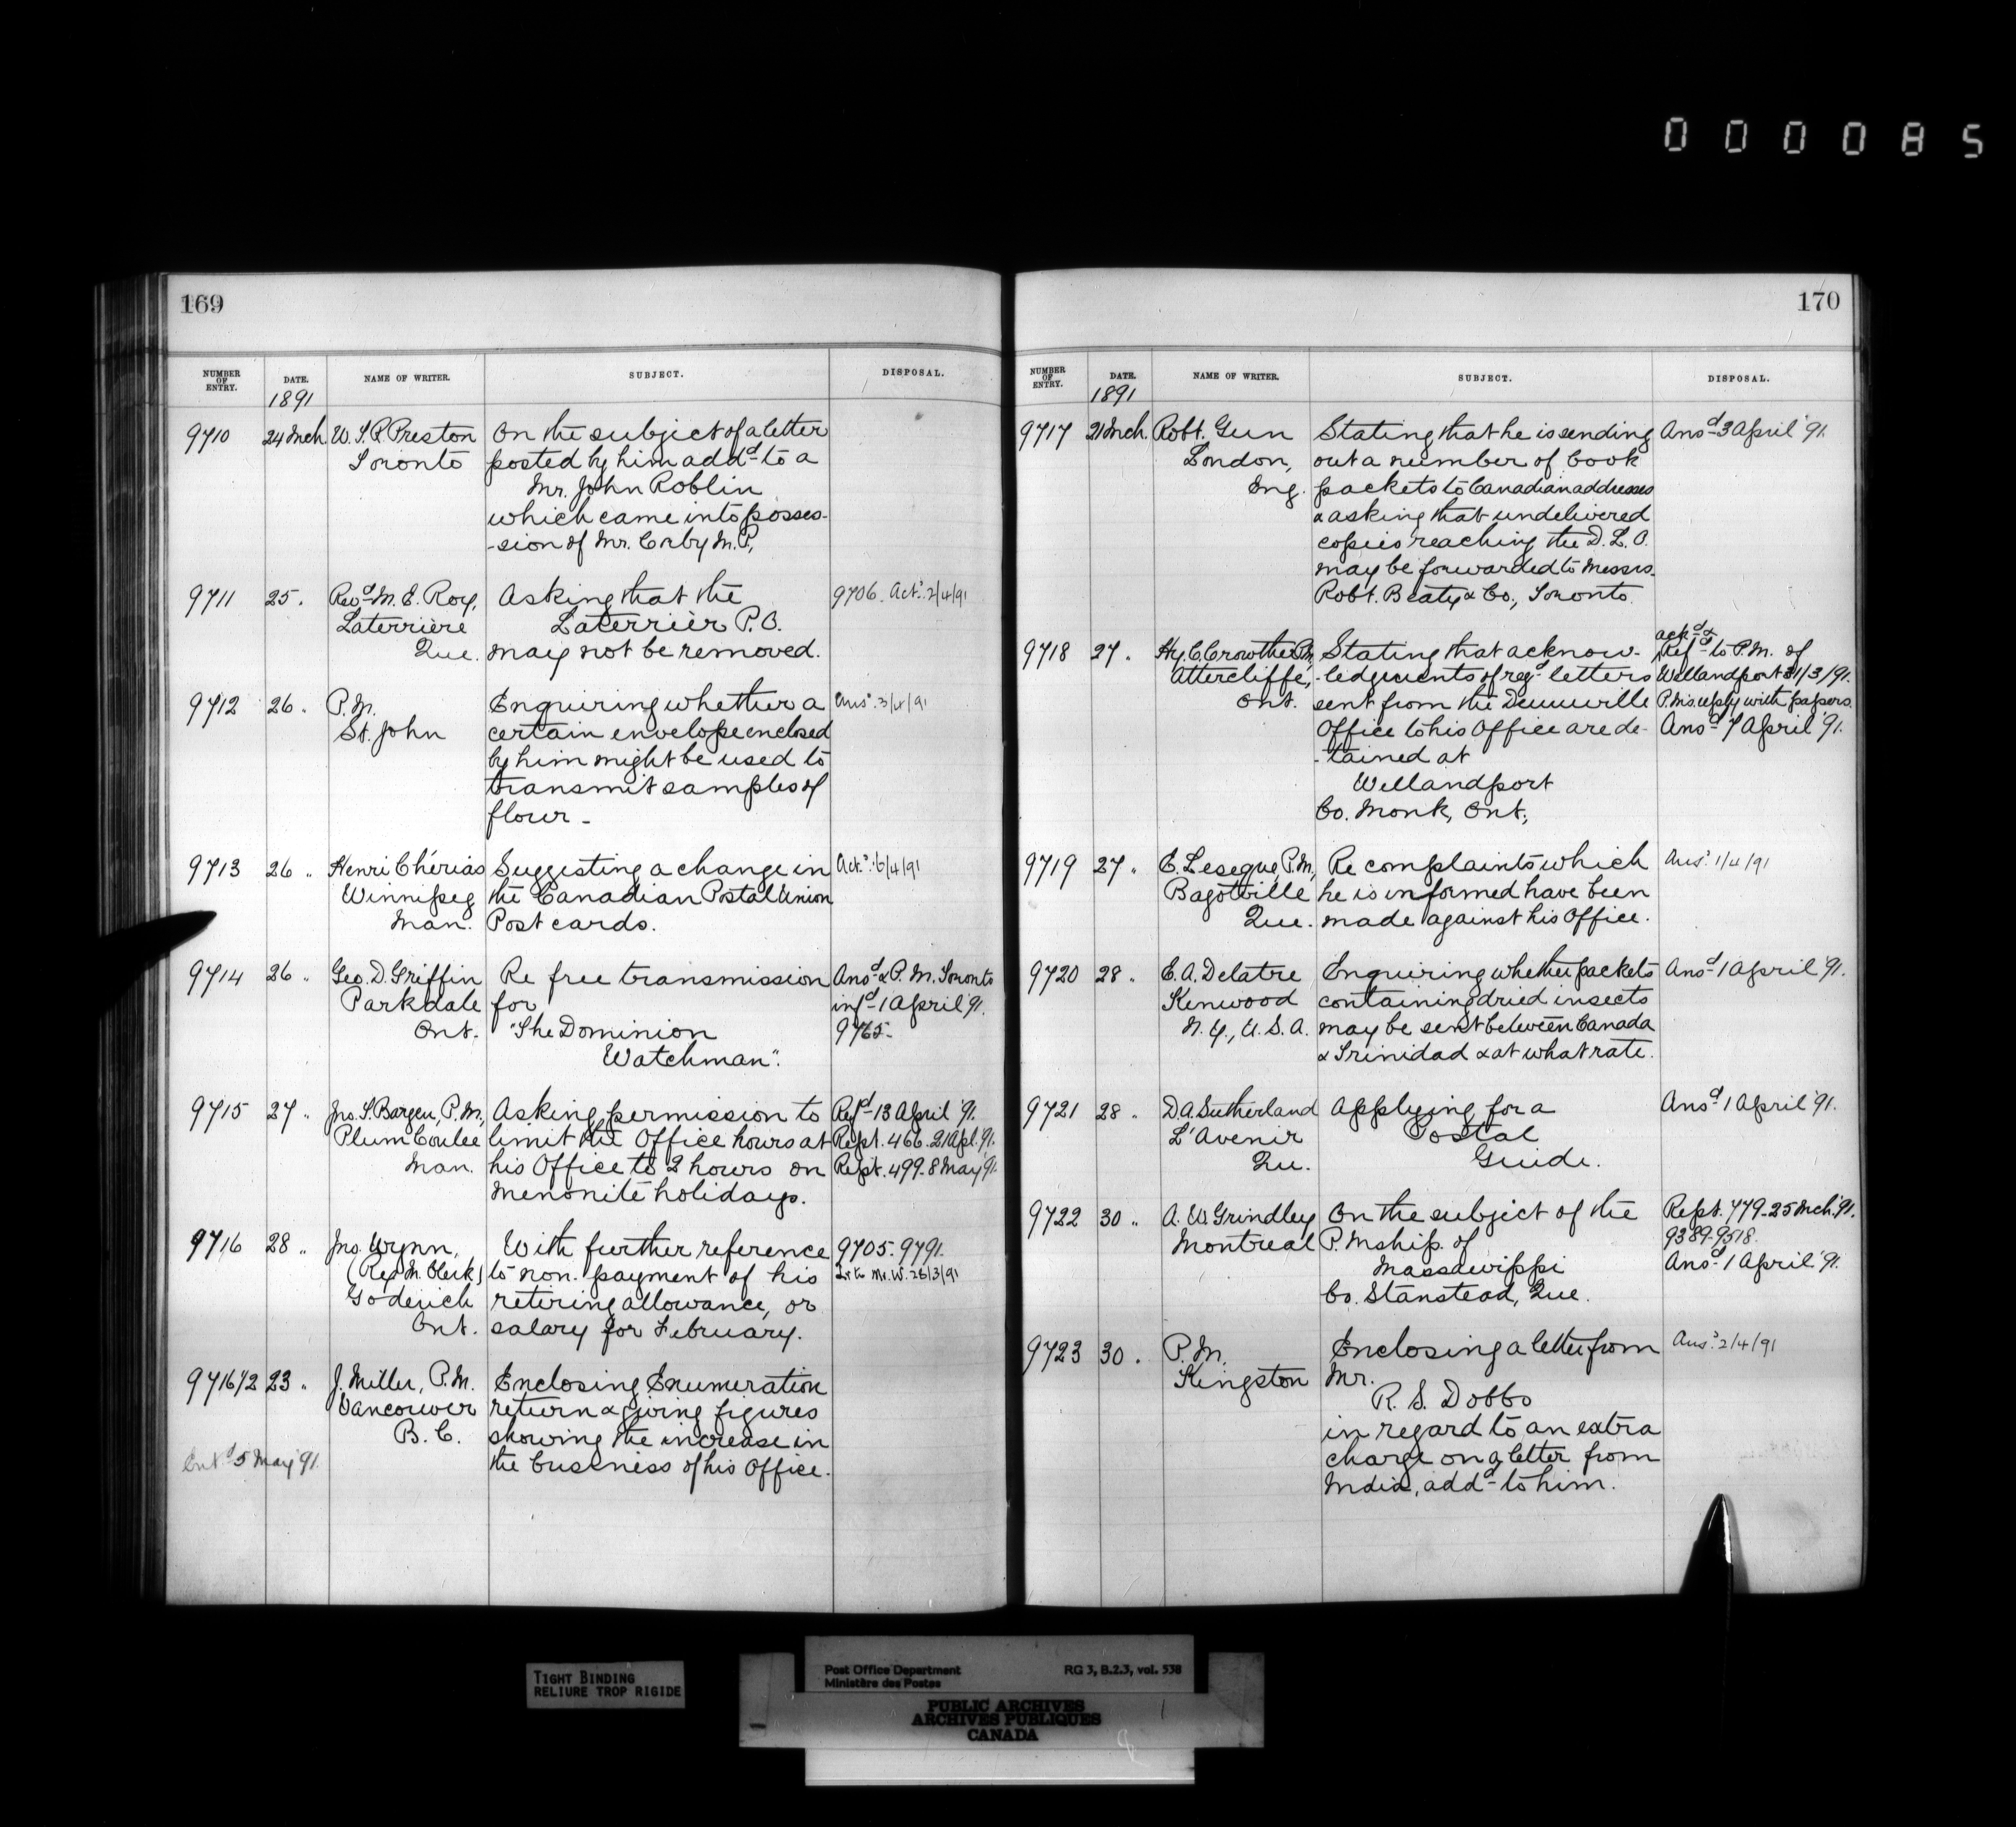 000085
169
NUMBER OF ENTRY. DATE. NAME OF WRITER. SUBJECT. DISPOSAL.
1891
9710 24 Mch. W. T. R. Preston On the subject of a letter
Toronto posted by him addd to a
Mr. John Roblin
which came into posses-
-sion of Mr. Corby M.P.,
9711 25 " Revd M. E. Roy, Asking that the 9706. Act. 2/4/91
Laterrière Laterrier P.O.
Que. may not be removed.
9712 26 " P.M. Enquiring whether a Ans. 3/4/91
St. John certain envelope enclosed
by him might be used to
transmit samples of
flour -
9713 26 " Henri Chérias Suggesting a change in Act. 6/4/91
Winnipeg the Canadian Postal Union
Man. Post cards.
9714 26 " Geo. D. Griffin Re free transmission Ansd & P.M. Toronto
Parkdale for infd 1 April '91.
Ont. "The Dominion 9765.
Watchman".
9715 27 " Jno. S. Bargen, P.M., Asking permission to Refd 13 April '91.
Plum Coulee limit the Office hours at Rept. 466. 21 Apl. '91.
Man. his Office to 2 hours on Rept. 499. 8 May '91.
Menonite holidays.
9716 28 " Jno. Wynn, With further reference 9705. 9791.
(Ry M. Clerk) to non. payment of his Lr to Mr. W. 26/3/91
Goderich retiring allowance, or
Ont. salary for February.
9716 1/2 23 " J. Miller, P.M. Enclosing Enumeration
Vancouver return & giving figures
B.C. showing the increase in
Entd 5 May '91. the business of his Office.
170
NUMBER OF ENTRY. DATE. NAME OF WRITER. SUBJECT. DISPOSAL.
1891
9717 21 Mch. Robt. Gun Stating that he is sending Ansd 3 April '91.
London, out a number of book
Eng. packets to Canadian addresses
& asking that undelivered
copies reaching the D.L.O.
may be forwarded to Messrs.
Robt. Beaty & Co., Toronto.
ackd &
9718 27 " Hy. C. Crowther P.M., Stating that acknow- Refd to P.M. of
Attercliffe, -ledgments of regd letters Wellandport 31/3/91.
Ont. sent from the Dunnville P.M's. reply with papers.
Office to his Office are de- Ansd 7 April '91.
-tained at
Wellandport
Co. Monk, Ont.,
9719 27 " E. Leseque, P.M., Re complaints which Ans. 1/4/91
Bagotville he is informed have been
Que. made against his Office.
9720 28 " E. A. Delatre Enquiring whether packets Ansd 1 April '91.
Kenwood containing dried insects
N.Y., U.S.A. may be sent between Canada
& Trinidad & at what rate.
9721 28 " D. A. Sutherland Applying for a Ansd 1 April '91.
L'Avenir Postal
Qu. Guide.
9722 30 " A. W. Grindley On the subject of the Rept. 779. 25 Mch. '91.
Montreal P.Mship. of 9389-9518.
Massawippi Ansd 1 April '91.
Co. Stanstead, Que.
9723 30 " P.M. Enclosing a letter from Ans. 2/4/91
Kingston Mr.
R. S. Dobbs
in regard to an extra
charge on a letter from
India, addd to him.
TIGHT BINDING
RELIURE TROP RIGIDE
Post Office Department RG 3, B.2.3, vol. 538
Ministère des Postes
PUBLIC ARCHIVES
ARCHIVES PUBLIQUES
CANADA